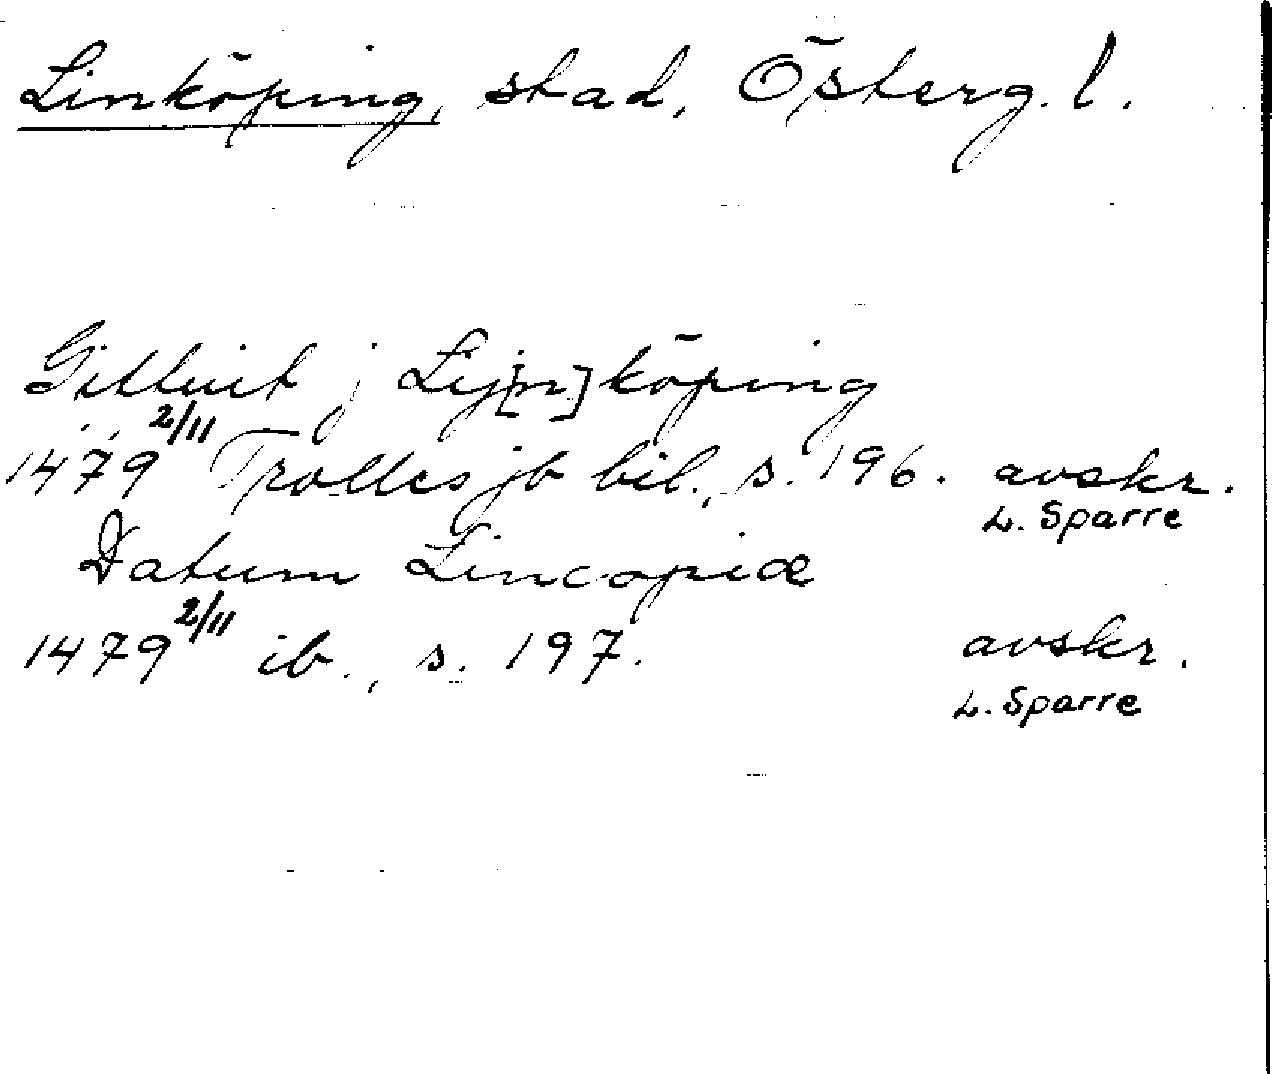 Linköping, stad, Österg. l.
Gilluit j Lij[n]köping
1479 2/11 Trolles jb bil., s. 196. avskr.
L. Sparre
Datum Lincopiæ
1479 2/11 ib., s. 197. avskr.
L. Sparre